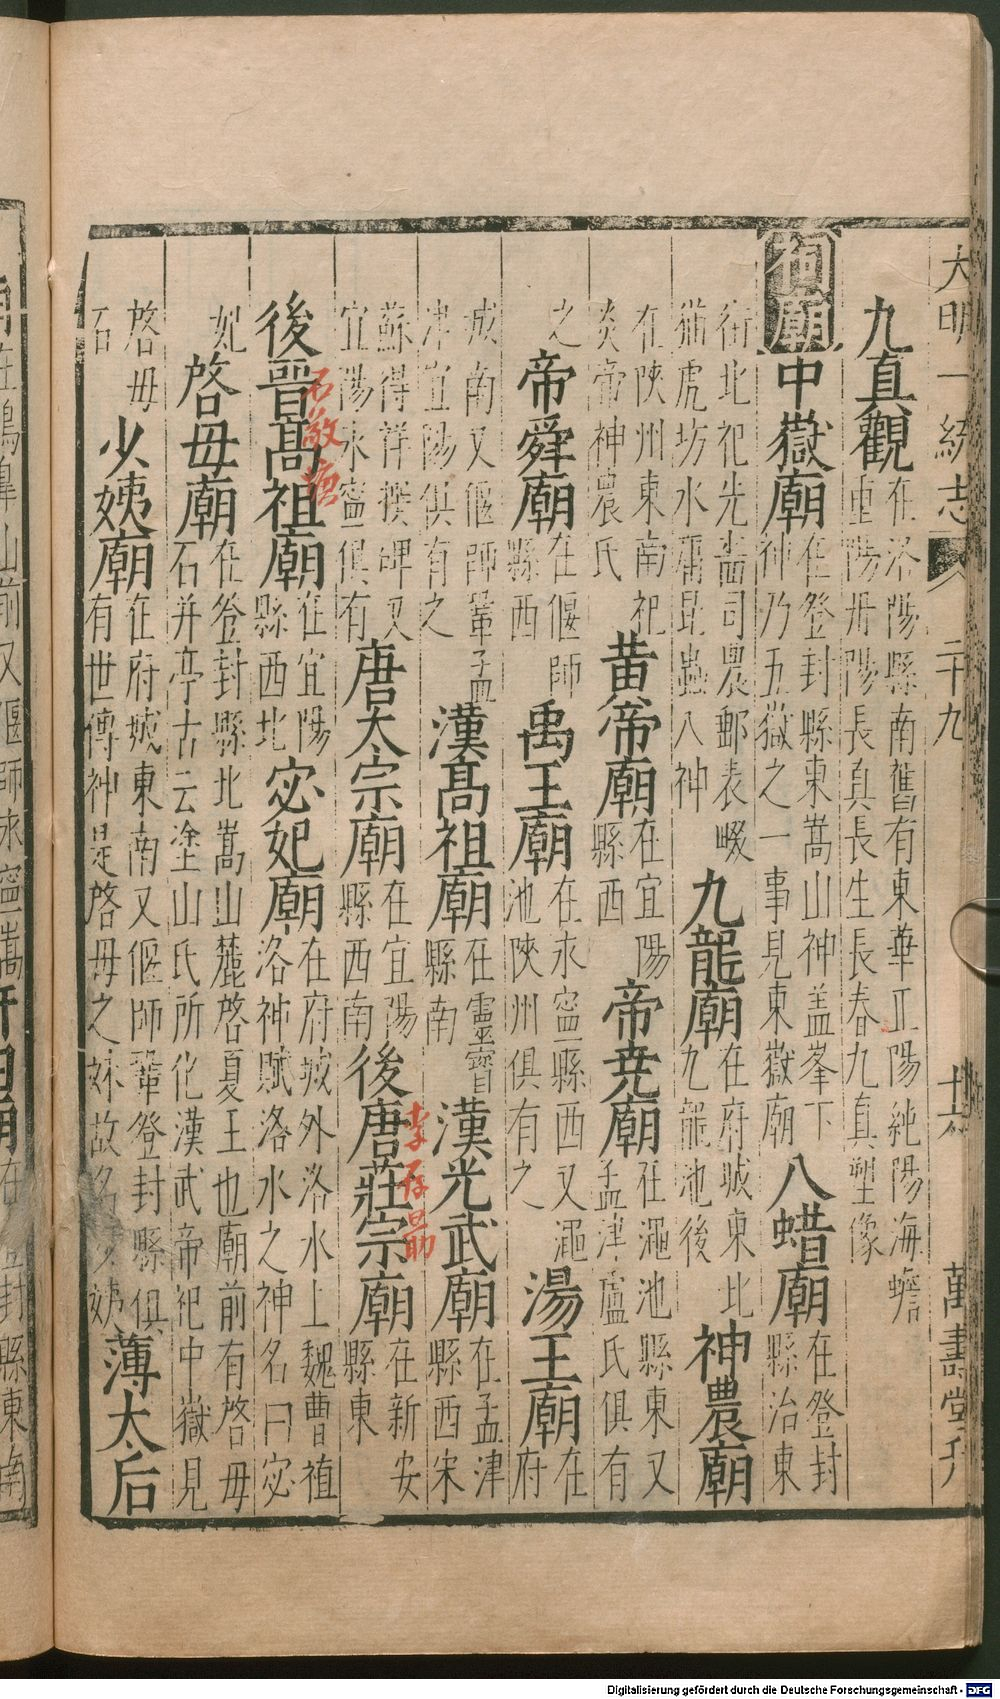 大明一統志 二十九 十六 萬壽堂刋
九真觀在洛陽縣南舊有東華正陽純陽海蟾重陽丹陽長真長生長春九真塑像
祠廟中嶽廟在登封縣東嵩山神蓋峯下神乃五嶽之一事見東嶽廟八蜡廟在登封縣治東
街北祀先嗇司農郵表畷猫虎坊水庸昆蟲八神九龍廟在府城東北九龍池後神農廟
在陝州東南祀炎帝神農氏黄帝廟在宜陽縣西帝堯廟在澠池縣東又孟津盧氏俱有
之帝舜廟在偃師縣西禹王廟在永寧縣西又澠池陝州俱有之湯王廟在府
城南又偃師鞏孟津宜陽俱有之漢髙祖廟在靈寳縣南漢光武廟在孟津縣西宋
蘇得祥撰碑又宜陽永寧俱有唐太宗廟在宜陽縣西南後唐莊宗廟在新安縣東
李存勗
後晉髙祖廟在宜陽縣西北宓妃廟在府城外洛水上魏曹植洛神賦洛水之神名曰宓
石敬瑭
妃啓母廟在登封縣北嵩山麓啓夏王也廟前有啓母石并亭古云塗山氏所化漢武帝祀中嶽見
啓母石少姨廟在府城東南又偃師鞏登封縣俱有世傳神是啓母之妹故名少姨薄太后
在鳴臯山前又偃師永寧嵩 廟在登封縣東南
Digitalisierung gefördert durch die Deutsche Forschungsgemeinschaft - DFG